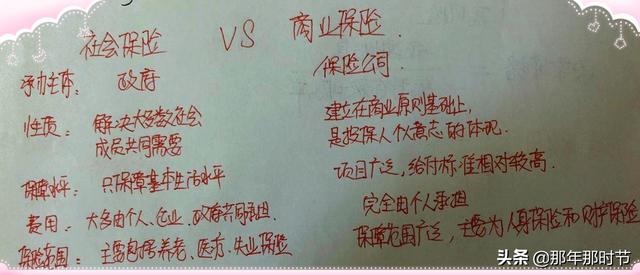 社会保险 VS 商业保险.
承办主体: 政府 保险公司.
性质: 解决大多数社会成员共同需要
建立在商业原则基础上,
是投保人个人意志的体现.
保障水平: 只保障基本生活水平
项目广泛,给付标准相对较高.
费用: 大多由个人、企业、政府共同承担.
完全由个人承担
保险范围: 主要包括养老、医疗、失业保险
保障范围广泛,主要为人身保险和财产保险
头条 @那年那时节